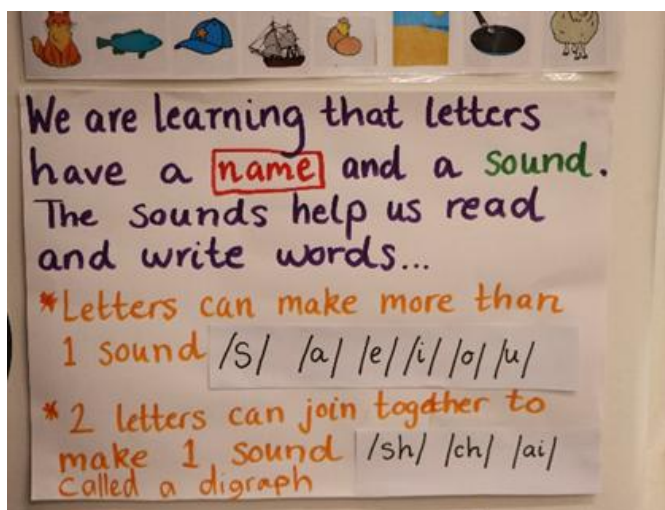 We are learning that letters
have a name and a sound.
The sounds help us read
and write words...
*Letters can make more than
1 sound /S/ /a/ /e/ /i/ /o/ /u/
* 2 letters can join together to
make 1 sound /sh/ /ch/ /ai/
called a digraph